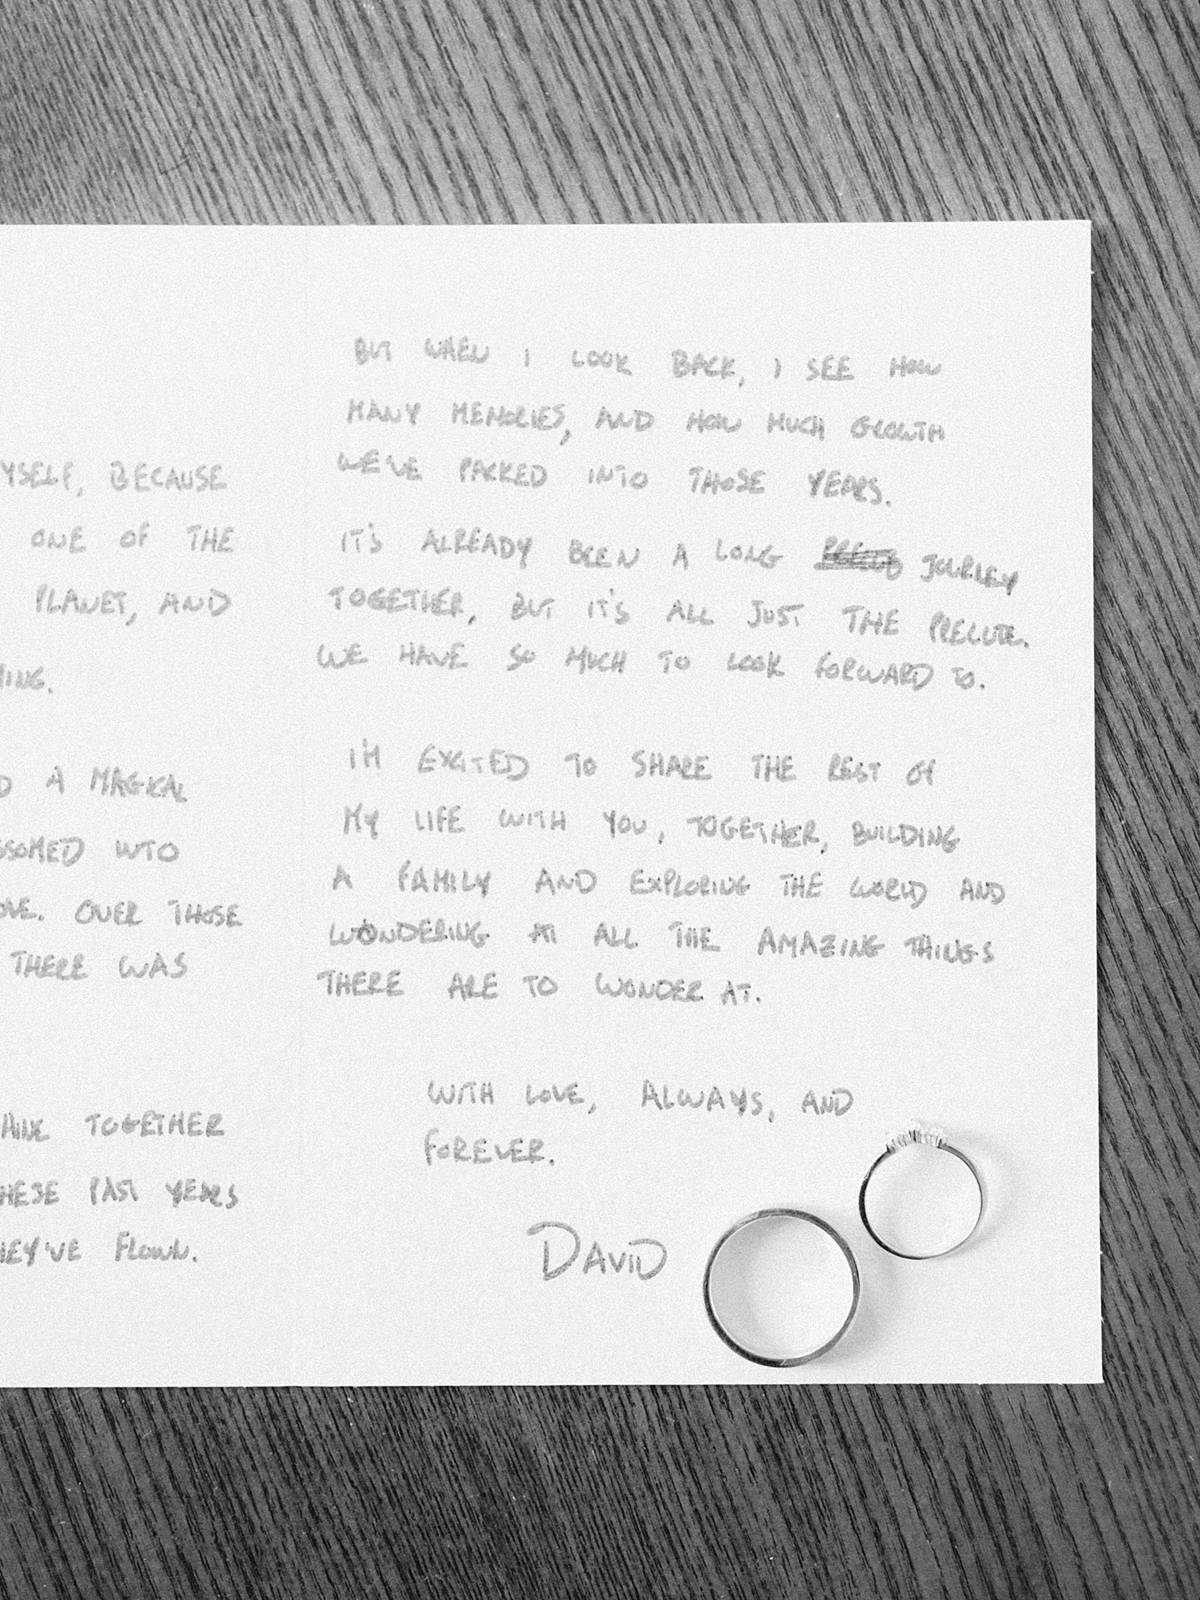 YSELF, BECAUSE
ONE OF THE
PLANET, AND
A MAGICAL
INTO
OVER THOSE
THERE WAS
TOGETHER
HESE PAST YEARS
HEY'VE FLOWN.
BUT WHEN I LOOK BACK, I SEE HOW
MANY MEMORIES, AND HOW MUCH GROWTH
WE'VE PACKED INTO THOSE YEARS.
IT'S ALREADY BEEN A LONG JOURNEY
TOGETHER, BUT IT'S ALL JUST THE PRELUDE.
WE HAVE SO MUCH TO LOOK FORWARD TO.
I'M EXCITED TO SHARE THE REST OF
MY LIFE WITH YOU, TOGETHER, BUILDING
A FAMILY AND EXPLORING THE WORLD AND
WONDERING AT ALL THE AMAZING THINGS
THERE ARE TO WONDER AT.
WITH LOVE, ALWAYS, AND
FOREVER.
DAVID